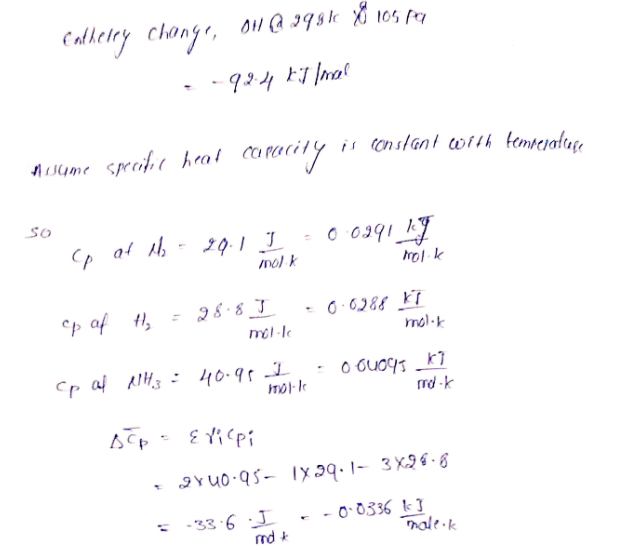 Entheley change, ΔH @ 298k & 105 Pa
= -92.4 kJ/mol
Assume specific heat capacity is constant with temperature
so
Cp of N₂ = 29.1 J/mol.k = 0.0291 kJ/mol.k
Cp of H₂ = 28.8 J/mol.k = 0.0288 kJ/mol.k
Cp of NH₃ = 40.95 J/mol.k = 0.04095 kJ/mol.k
ΔC̅p = Σ γi Cpi
= 2×40.95 - 1×29.1 - 3×28.8
= -33.6 J/mol k = -0.0336 kJ/mole.k